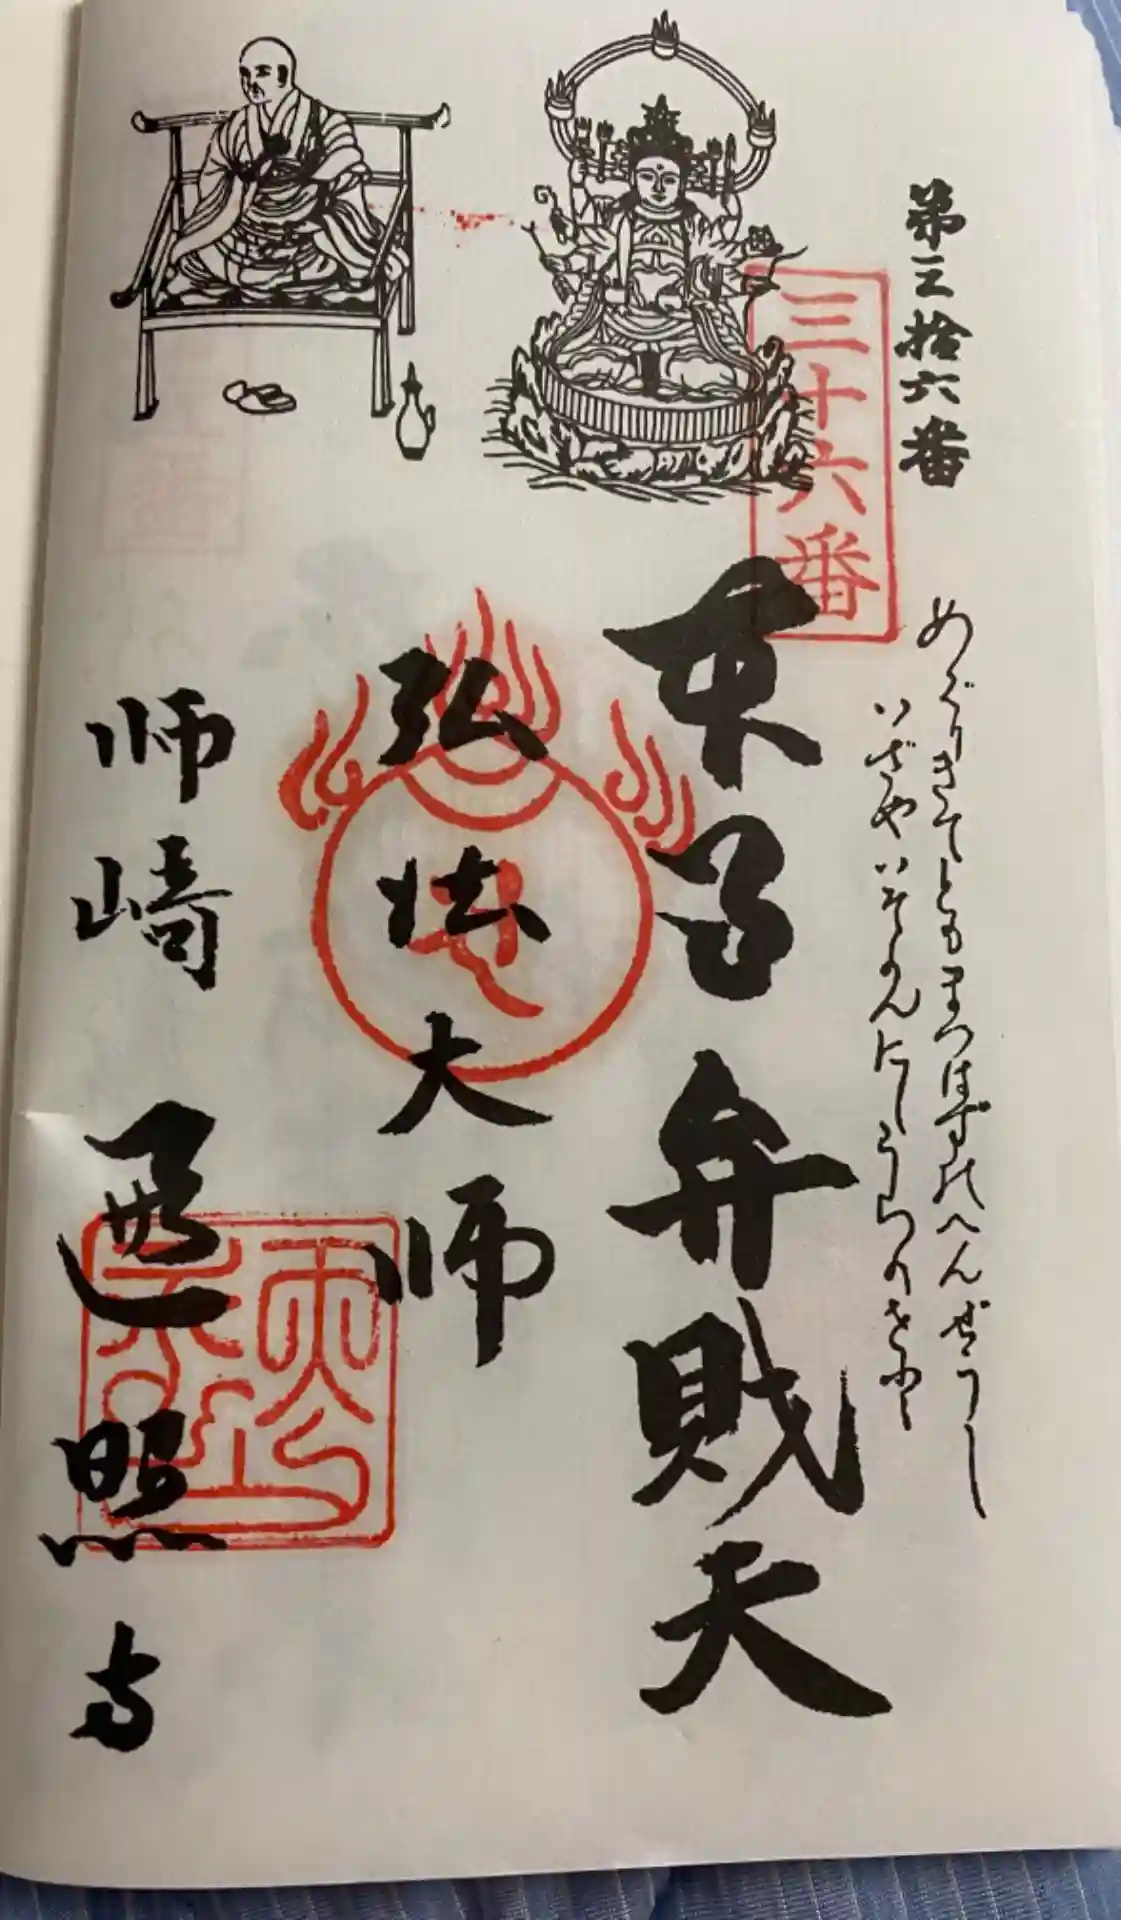 第三拾六番
三十六番
めぐりきてともまつはずのへんぜうし
いざやいそかんにしうらのさと
弁財天
弘法大師
師崎 遍照寺